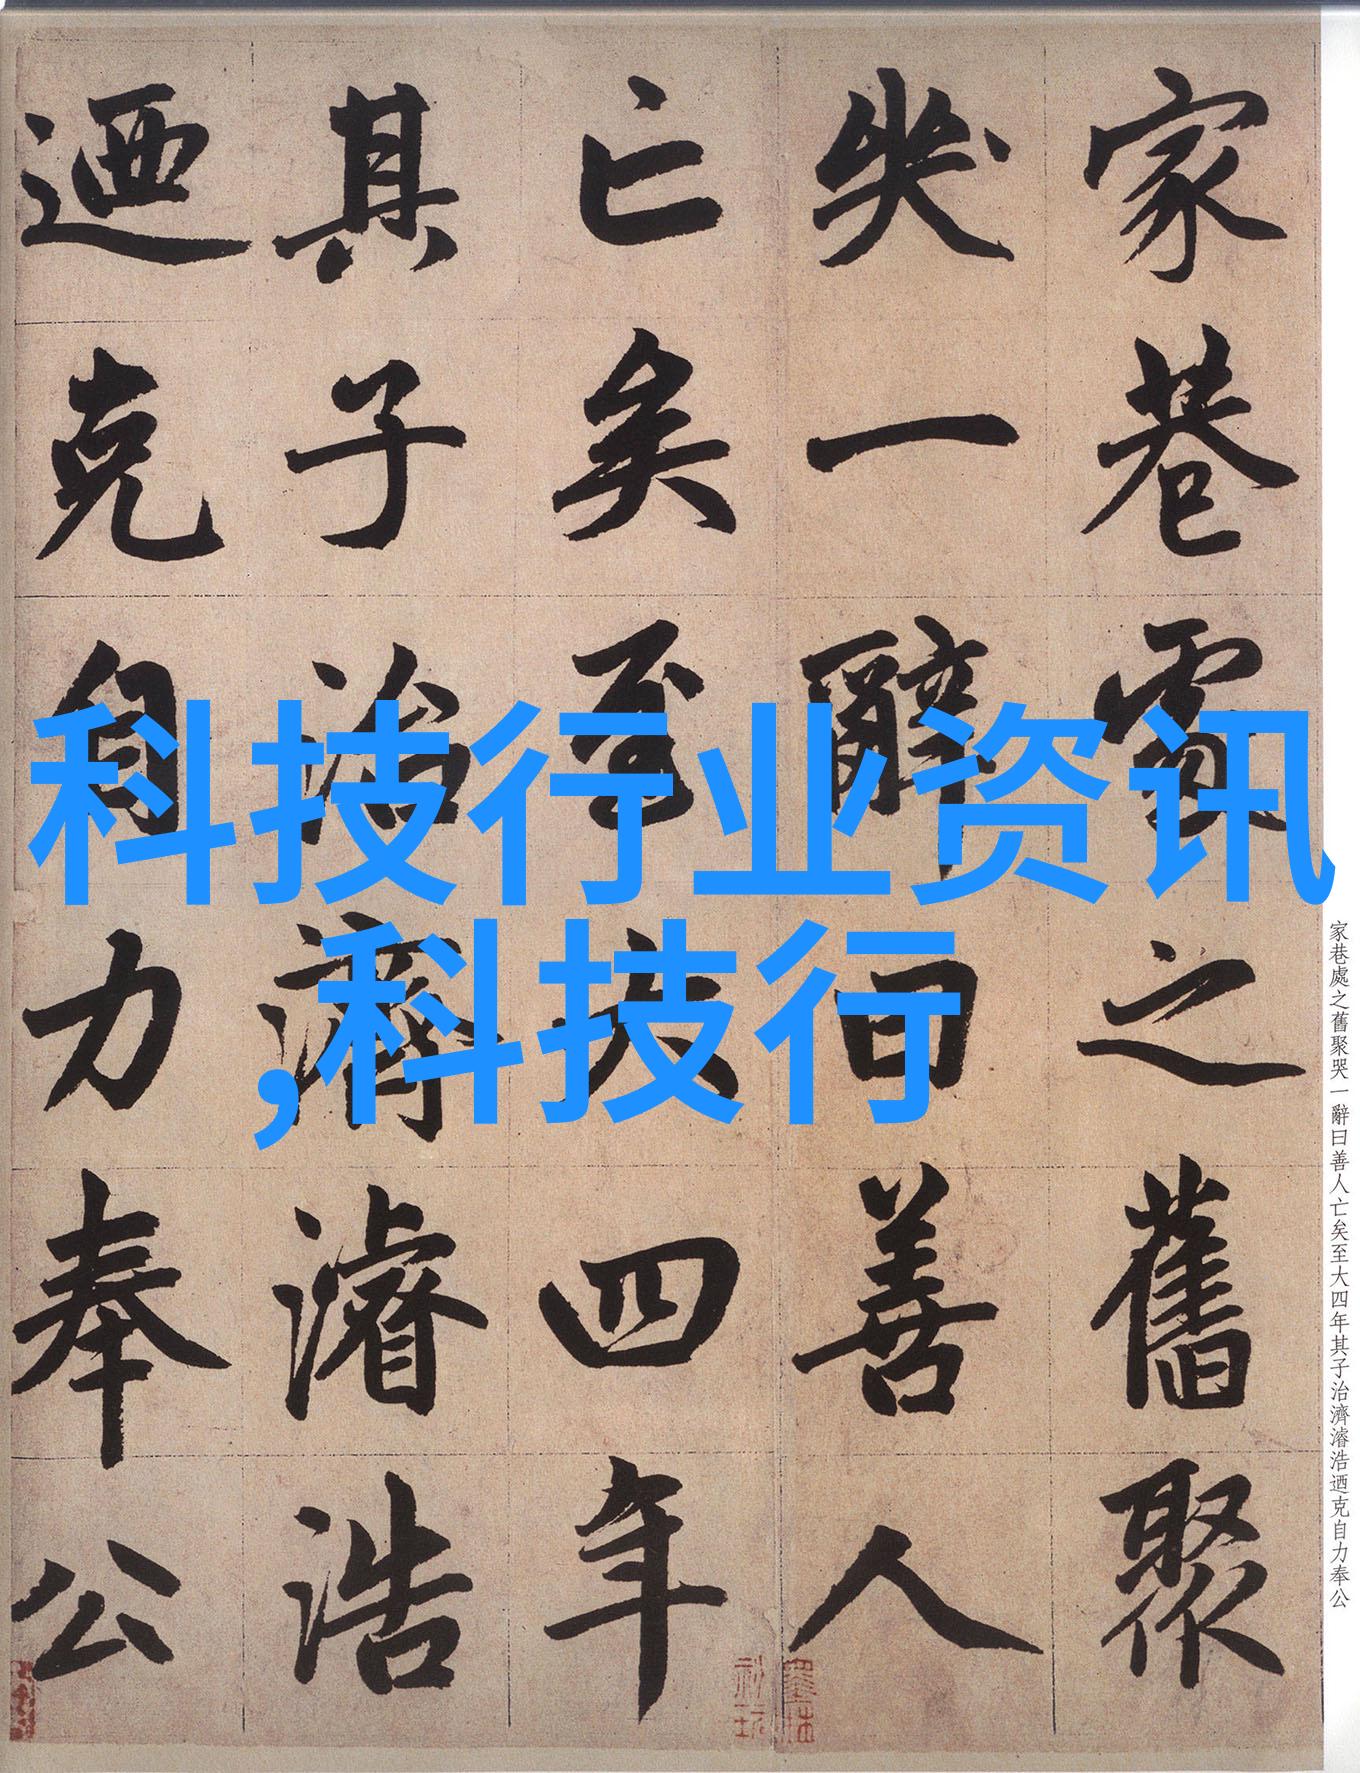 科技行业资讯
,科技行
家巷處之舊聚
哭一辭曰善人
亡矣至大四年
其子治濟濬浩
迺克自力奉公
家巷處之舊聚哭一辭曰善人亡矣至大四年其子治濟濬浩迺克自力奉公
墨林
祕玩